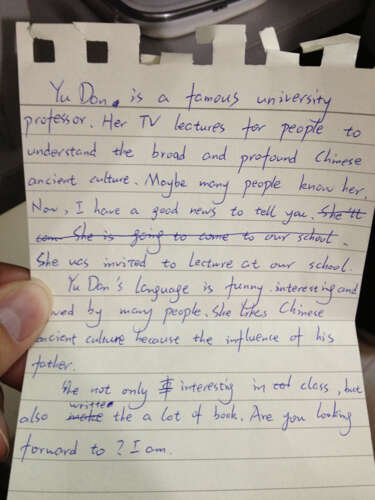 Yu Dan. is a famous university
professor. Her TV lectures for people to
understand the broad and profound Chinese
ancient culture. Maybe many people know her.
Now, I have a good news to tell you. She'll
com She is going to come to our school.
She was invited to lecture at our school.
Yu Dan's language is funny. interesting and
wed by many people. She likes Chinese
ancient culture because the influence of his
father.
She not only interestig in class, but
also make written the a lot of book. Are you looking
forward to? I am.